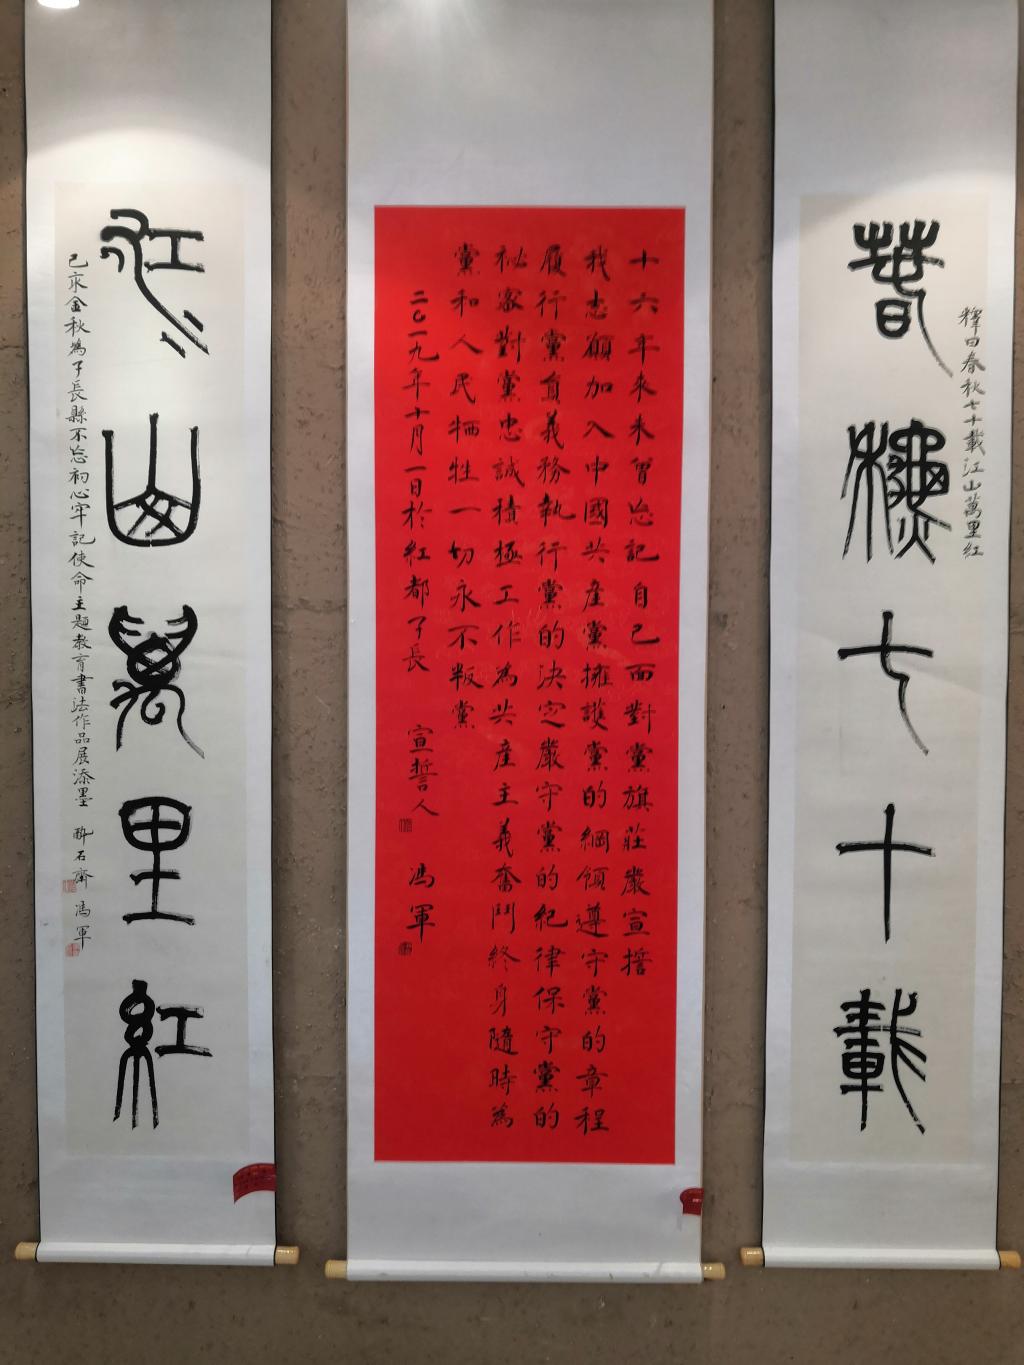 春穐七十載
釋曰春秋七十載江山萬里紅
十六年來未曾忘記自己面對黨旗莊嚴宣誓
我志願加入中國共產黨擁護黨的綱領遵守黨的章程
履行黨員義務執行黨的決定嚴守黨的紀律保守黨的
秘密對黨忠誠積極工作為共產主義奮鬥終身隨時為
黨和人民犧牲一切永不叛黨
二〇一九年十月一日於紅都子長 宣誓人 馮軍
江山萬里紅
己亥金秋為子長縣不忘初心牢記使命主題教育書法作品展添墨 醉石齋 馮軍